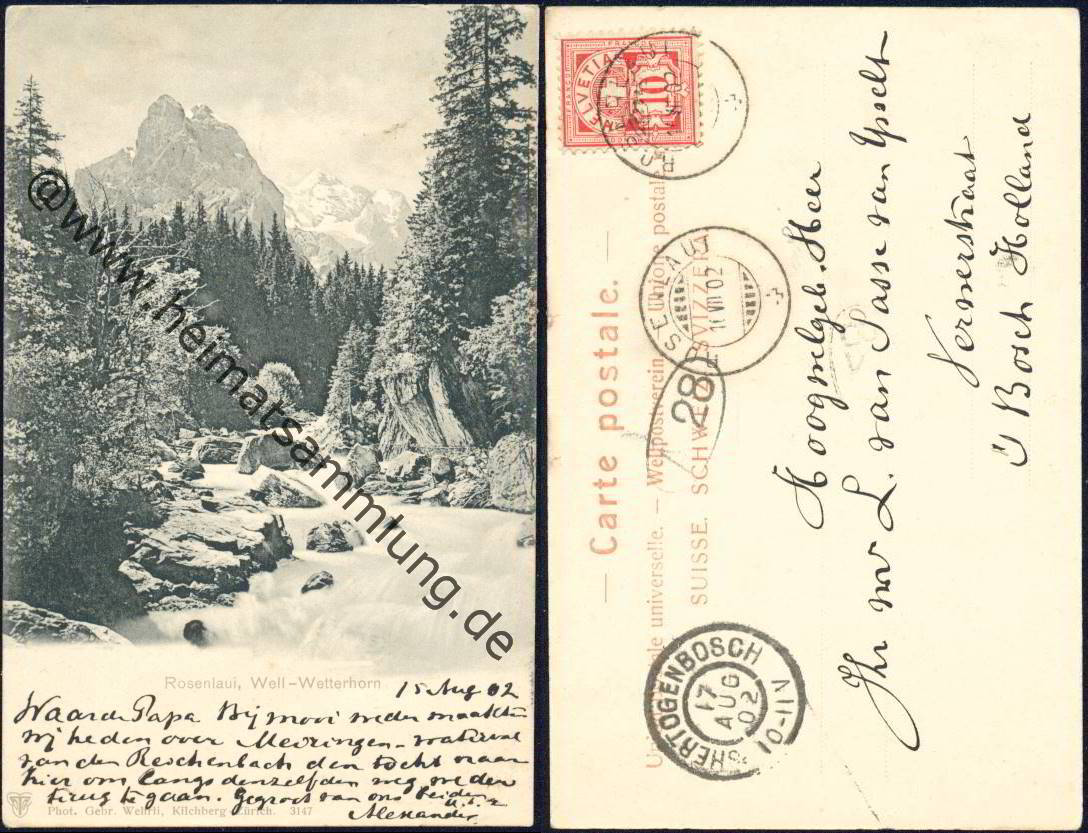 @www.heimatsammlung.de
Rosenlaui, Well-Wetterhorn
15 Aug 02
Waarde Papa Bij mooi weder maakten
wij heden over Meiringen - waterval
van den Reichenbach den tocht naar
hier om langs denzelfden weg weder
terug te gaan. Gegroet van ons beiden
Alexander
Phot. Gebr. Wehrli, Kilchberg-Zürich. 3147
HELVETIA
10
FRANCO
ROSENLAUI
— Carte postale. —
Union postale universelle. — Weltpostverein — Unione postale
SUISSE. SCHWEIZ. SVIZZERA
16 VIII 02
28
'SHERTOGENBOSCH
17
AUG
02
10-11 V
Hoogwelgeb. Heer
L. van Sasse van Ysselt
Holland